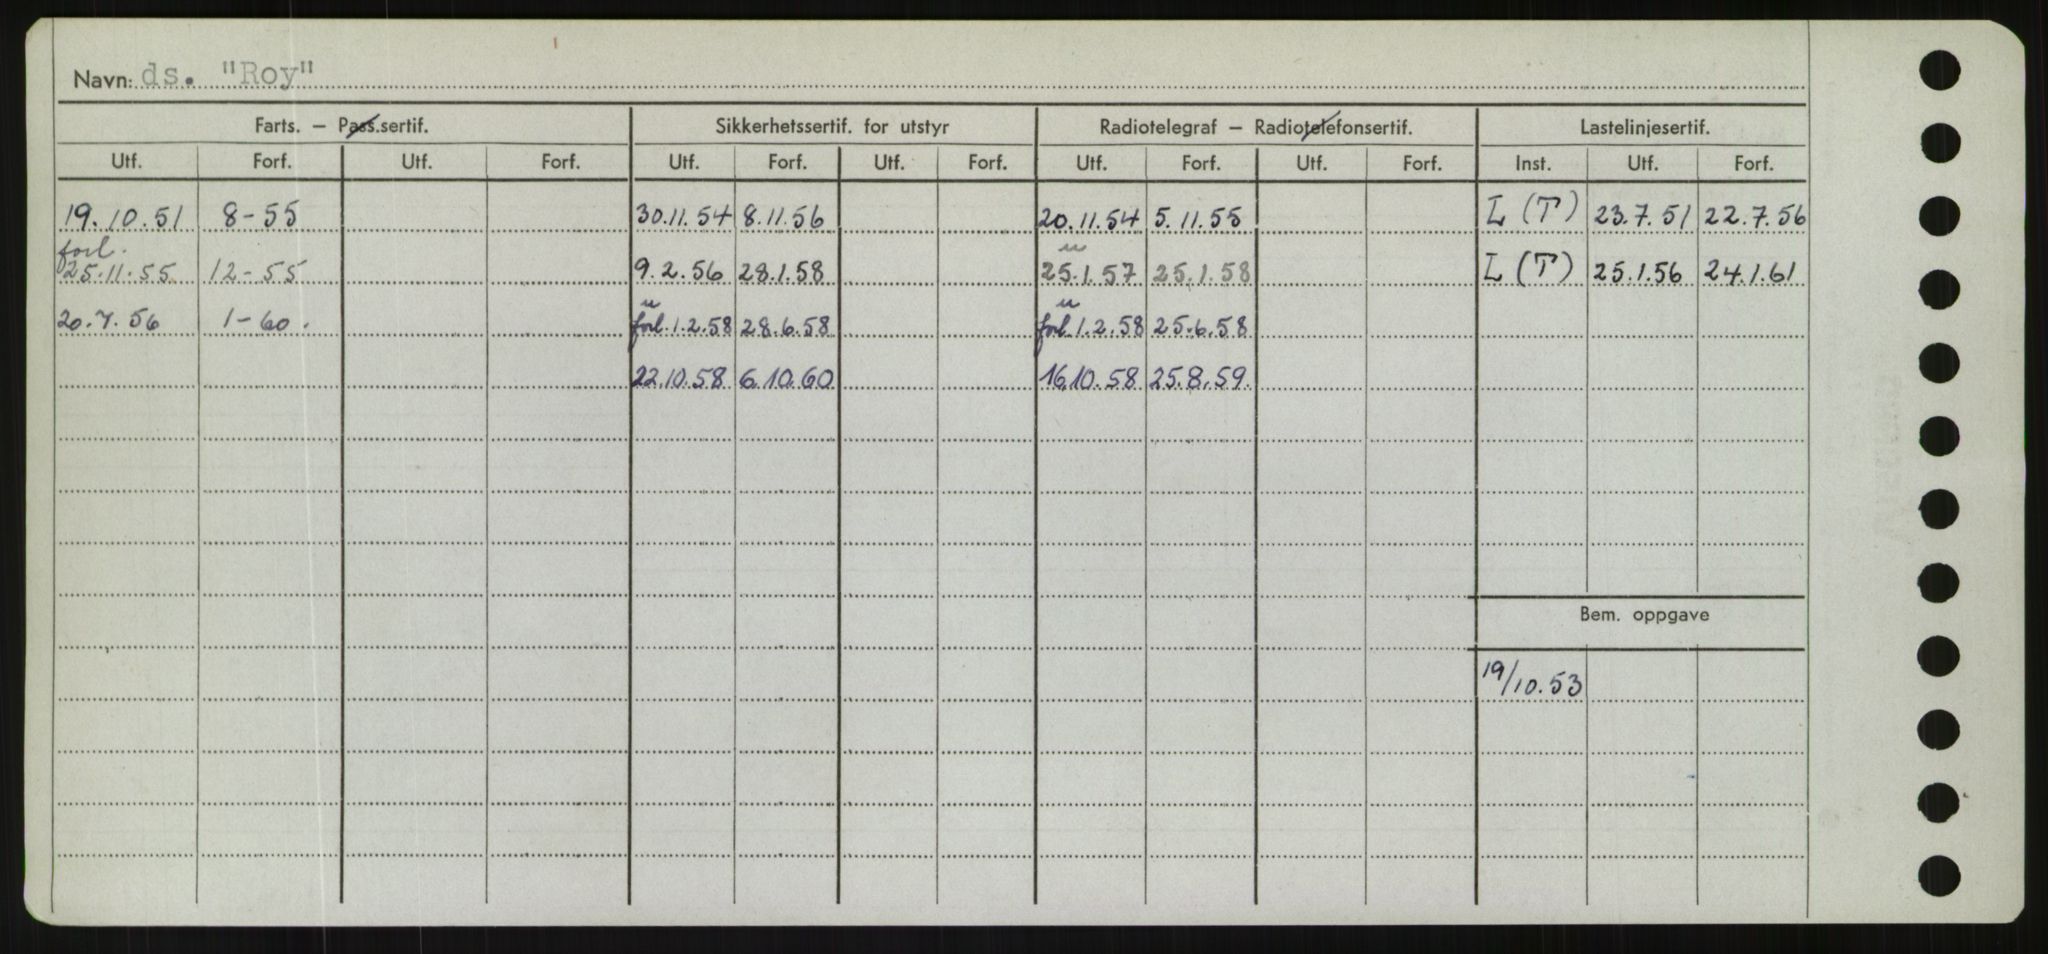 Navn: ds. "Roy"
Farts. – Pass.sertif. Sikkerhetssertif. for utstyr Radiotelegraf – Radiotelefonsertif. Lastelinjesertif.
Utf. Forf. Utf. Forf. Utf. Forf. Utf. Forf. Utf. Forf. Utf. Forf. Inst. Utf. Forf.
19.10.51 8-55 30.11.54 8.11.56 20.11.54 5.11.55 L (T) 23.7.51 22.7.56
forl. "
25.11.55 12-55 9.2.56 28.1.58 25.1.57 25.1.58 L (T) 25.1.56 24.1.61
" "
20.7.56 1-60. forl. 1.2.58 28.6.58 forl. 1.2.58 25.6.58
22.10.58 6.10.60 16.10.58 25.8.59.
Bem. oppgave
19/10.53